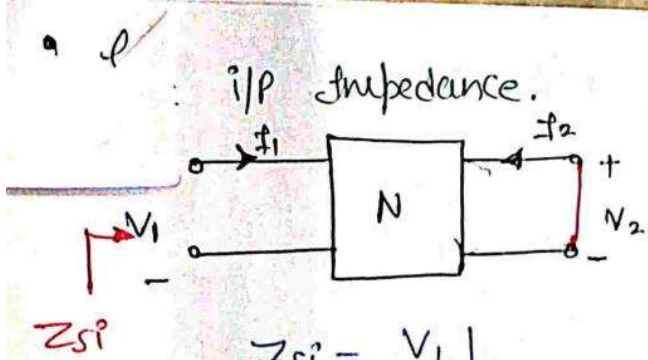 i/p Impedance.
I1 I2
+
N
V1 V2
- -
Zsi
Zsi = V1 |